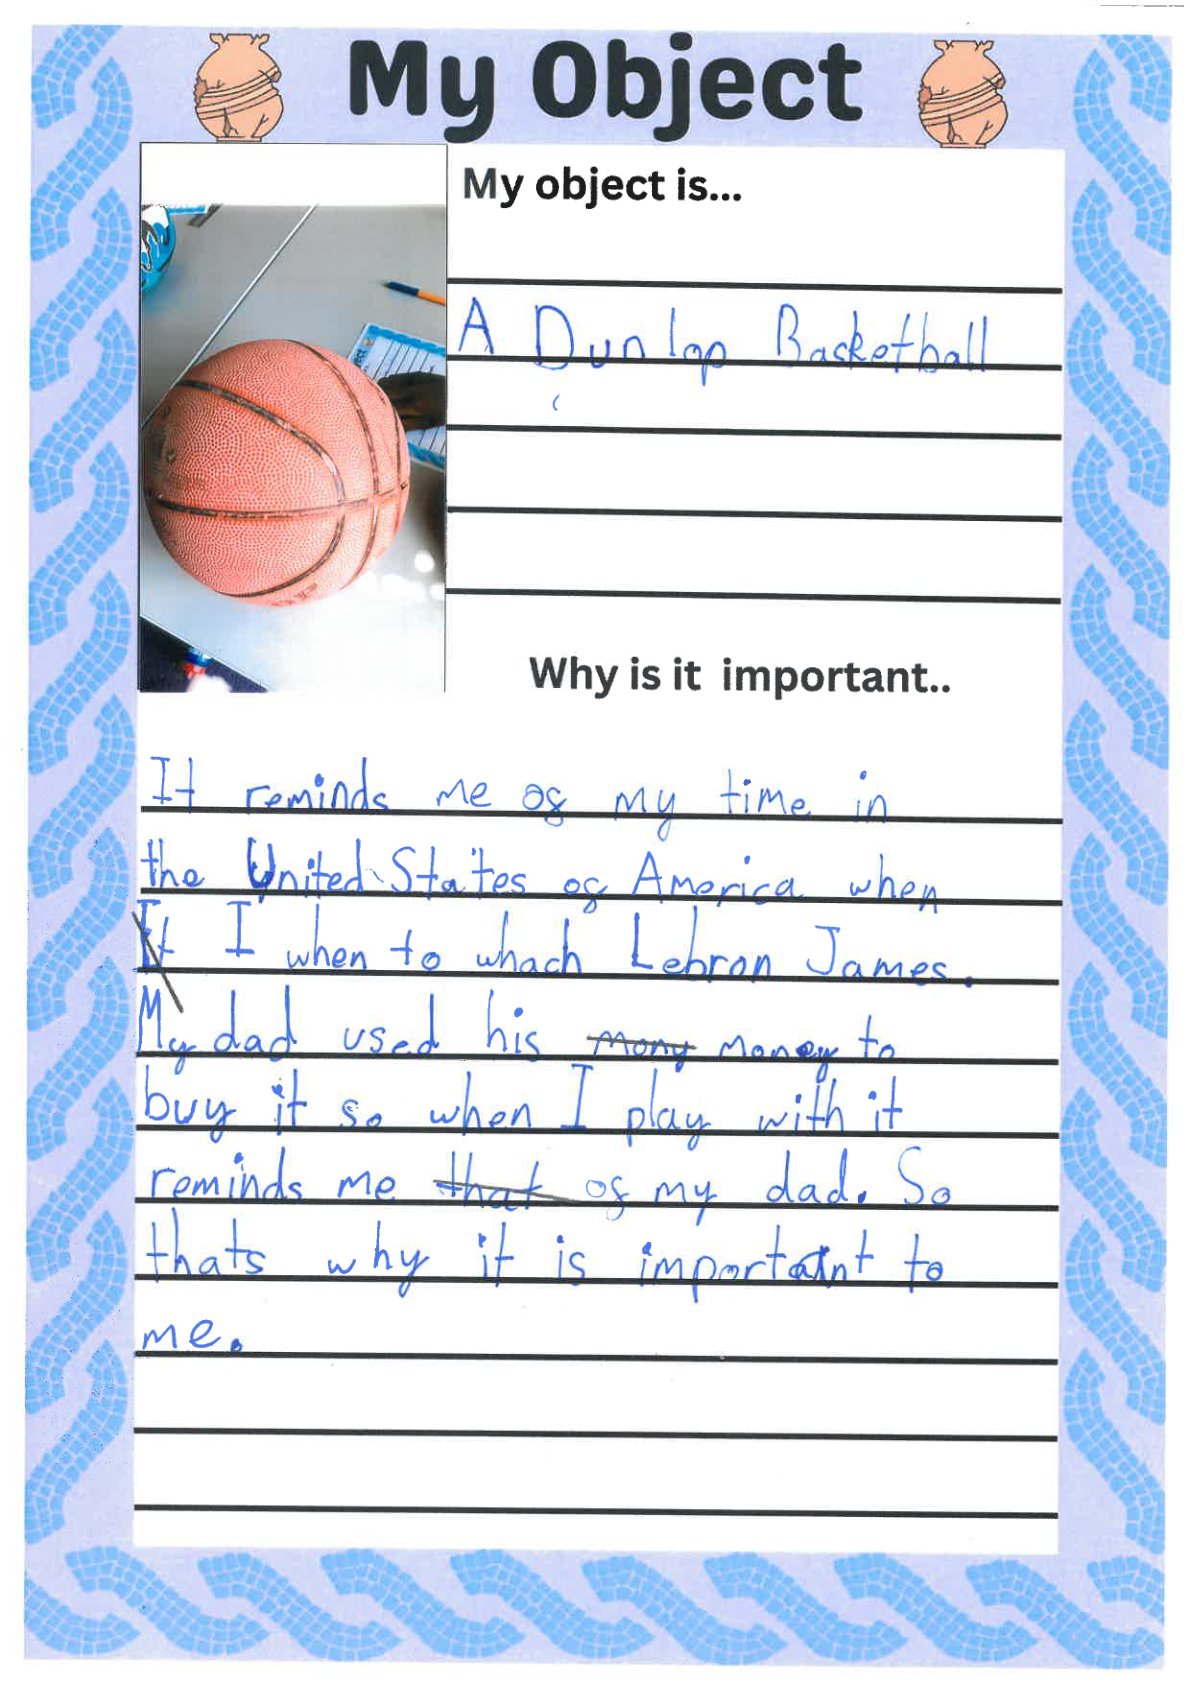 My Object
My object is...
A Dunlop Basketball
Why is it important..
It reminds me of my time in
the United States of America when
It I when to whach Lebron James.
My dad used his mony money to
buy it so when I play with it
reminds me that of my dad. So
thats why it is important to
me.